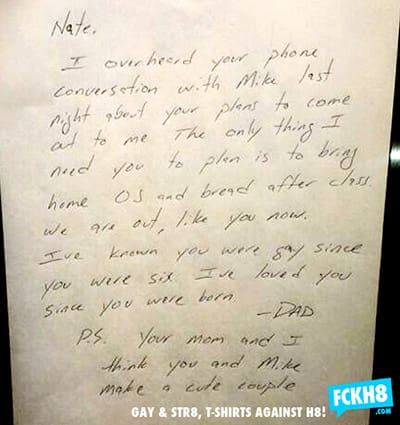 Nate,
I overheard your phone
conversation with Mike last
night about your plans to come
out to me The only thing I
need you to plan is to bring
home OJ and bread after class.
We are out, like you now.
I've known you were gay since
you were six. I've loved you
since you were born.
-DAD
P.S. Your mom and I
think you and Mike
make a cute couple
GAY & STR8, T-SHIRTS AGAINST H8!
FCKH8
.com